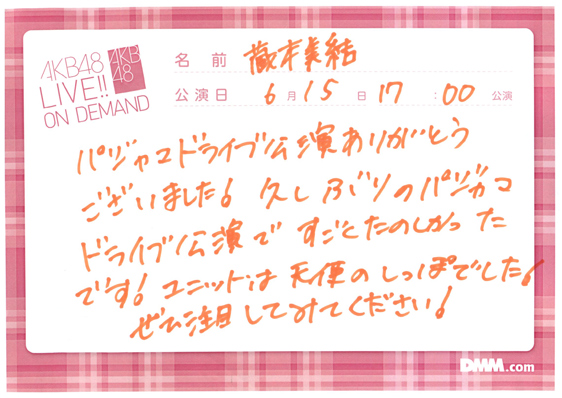 AKB48
LIVE!!
ON DEMAND
AKB
48
名前 蔵本美結
公演日 6月15日17:00公演
パジャマドライブ公演ありがとう
ございました! 久しぶりのパジャマ
ドライブ公演ですごくたのしかった
です! ユニットは天使のしっぽでした!
ぜひ注目してみてください!
DMM.com